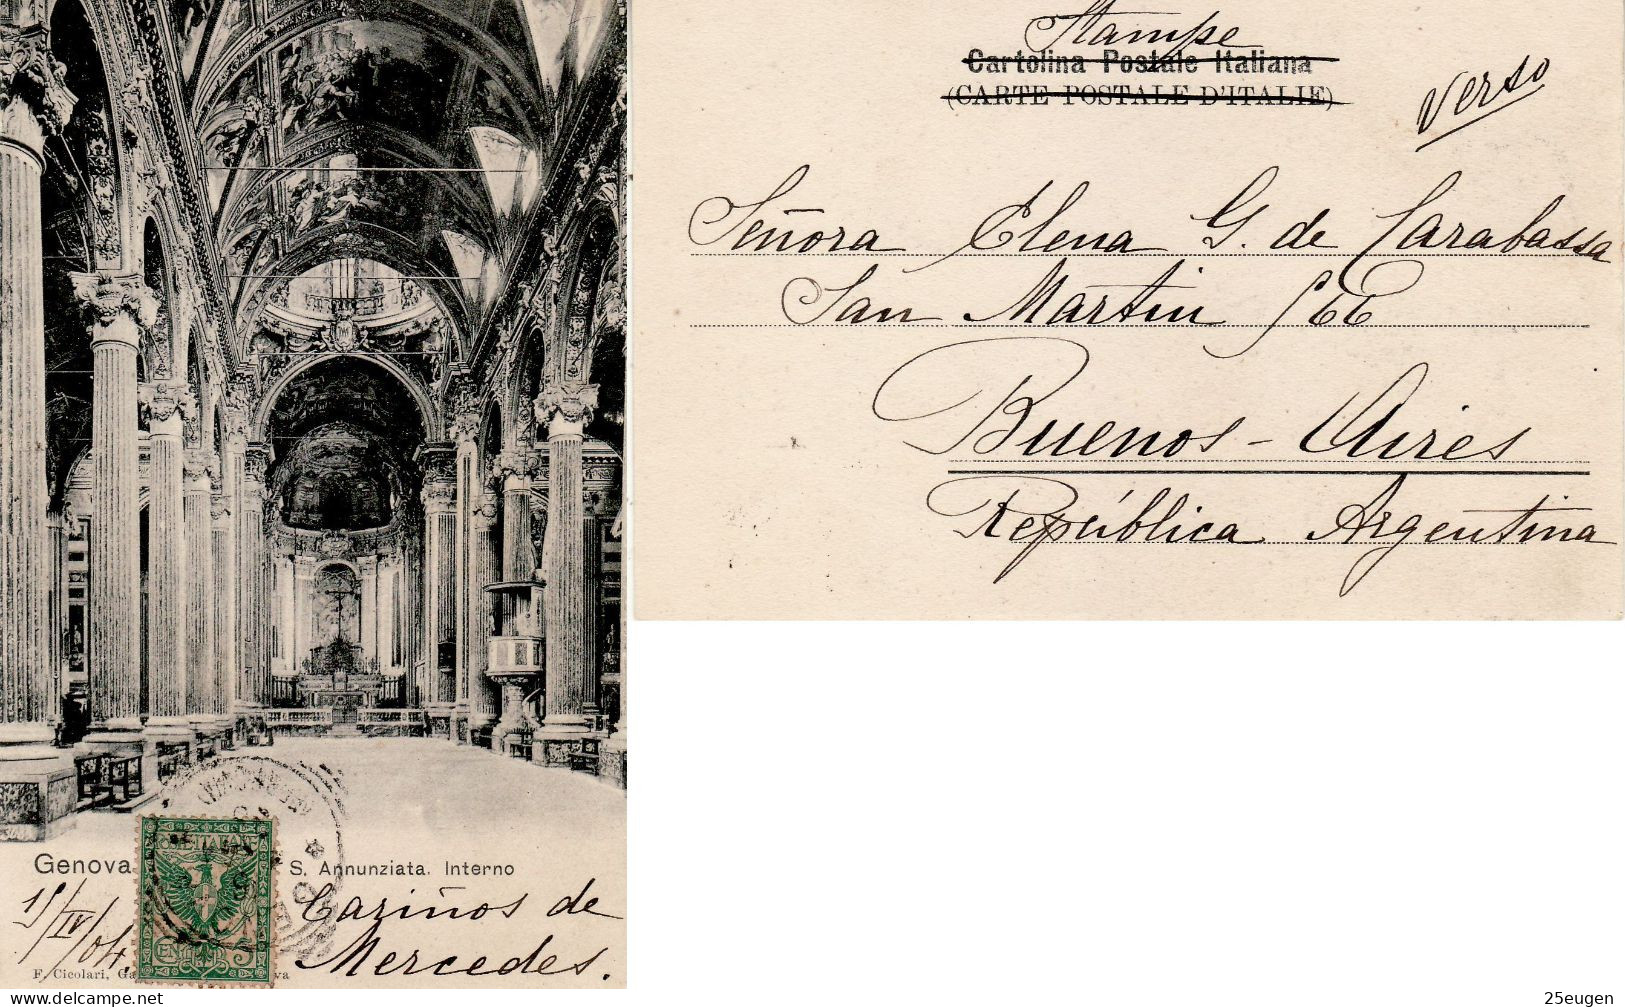 Genova S. Annunziata. Interno
15/IV/04.
Cariños de
Mercedes.
F. Cicolari, Ga
va
POSTE ITALIANE
CENT 5
Stampe
Cartolina Postale Italiana
(CARTE POSTALE D'ITALIE)
verso
Señora Elena G. de Carabassa
San Martin 566
Buenos-Aires
República Argentina
www.delcampe.net
25eugen